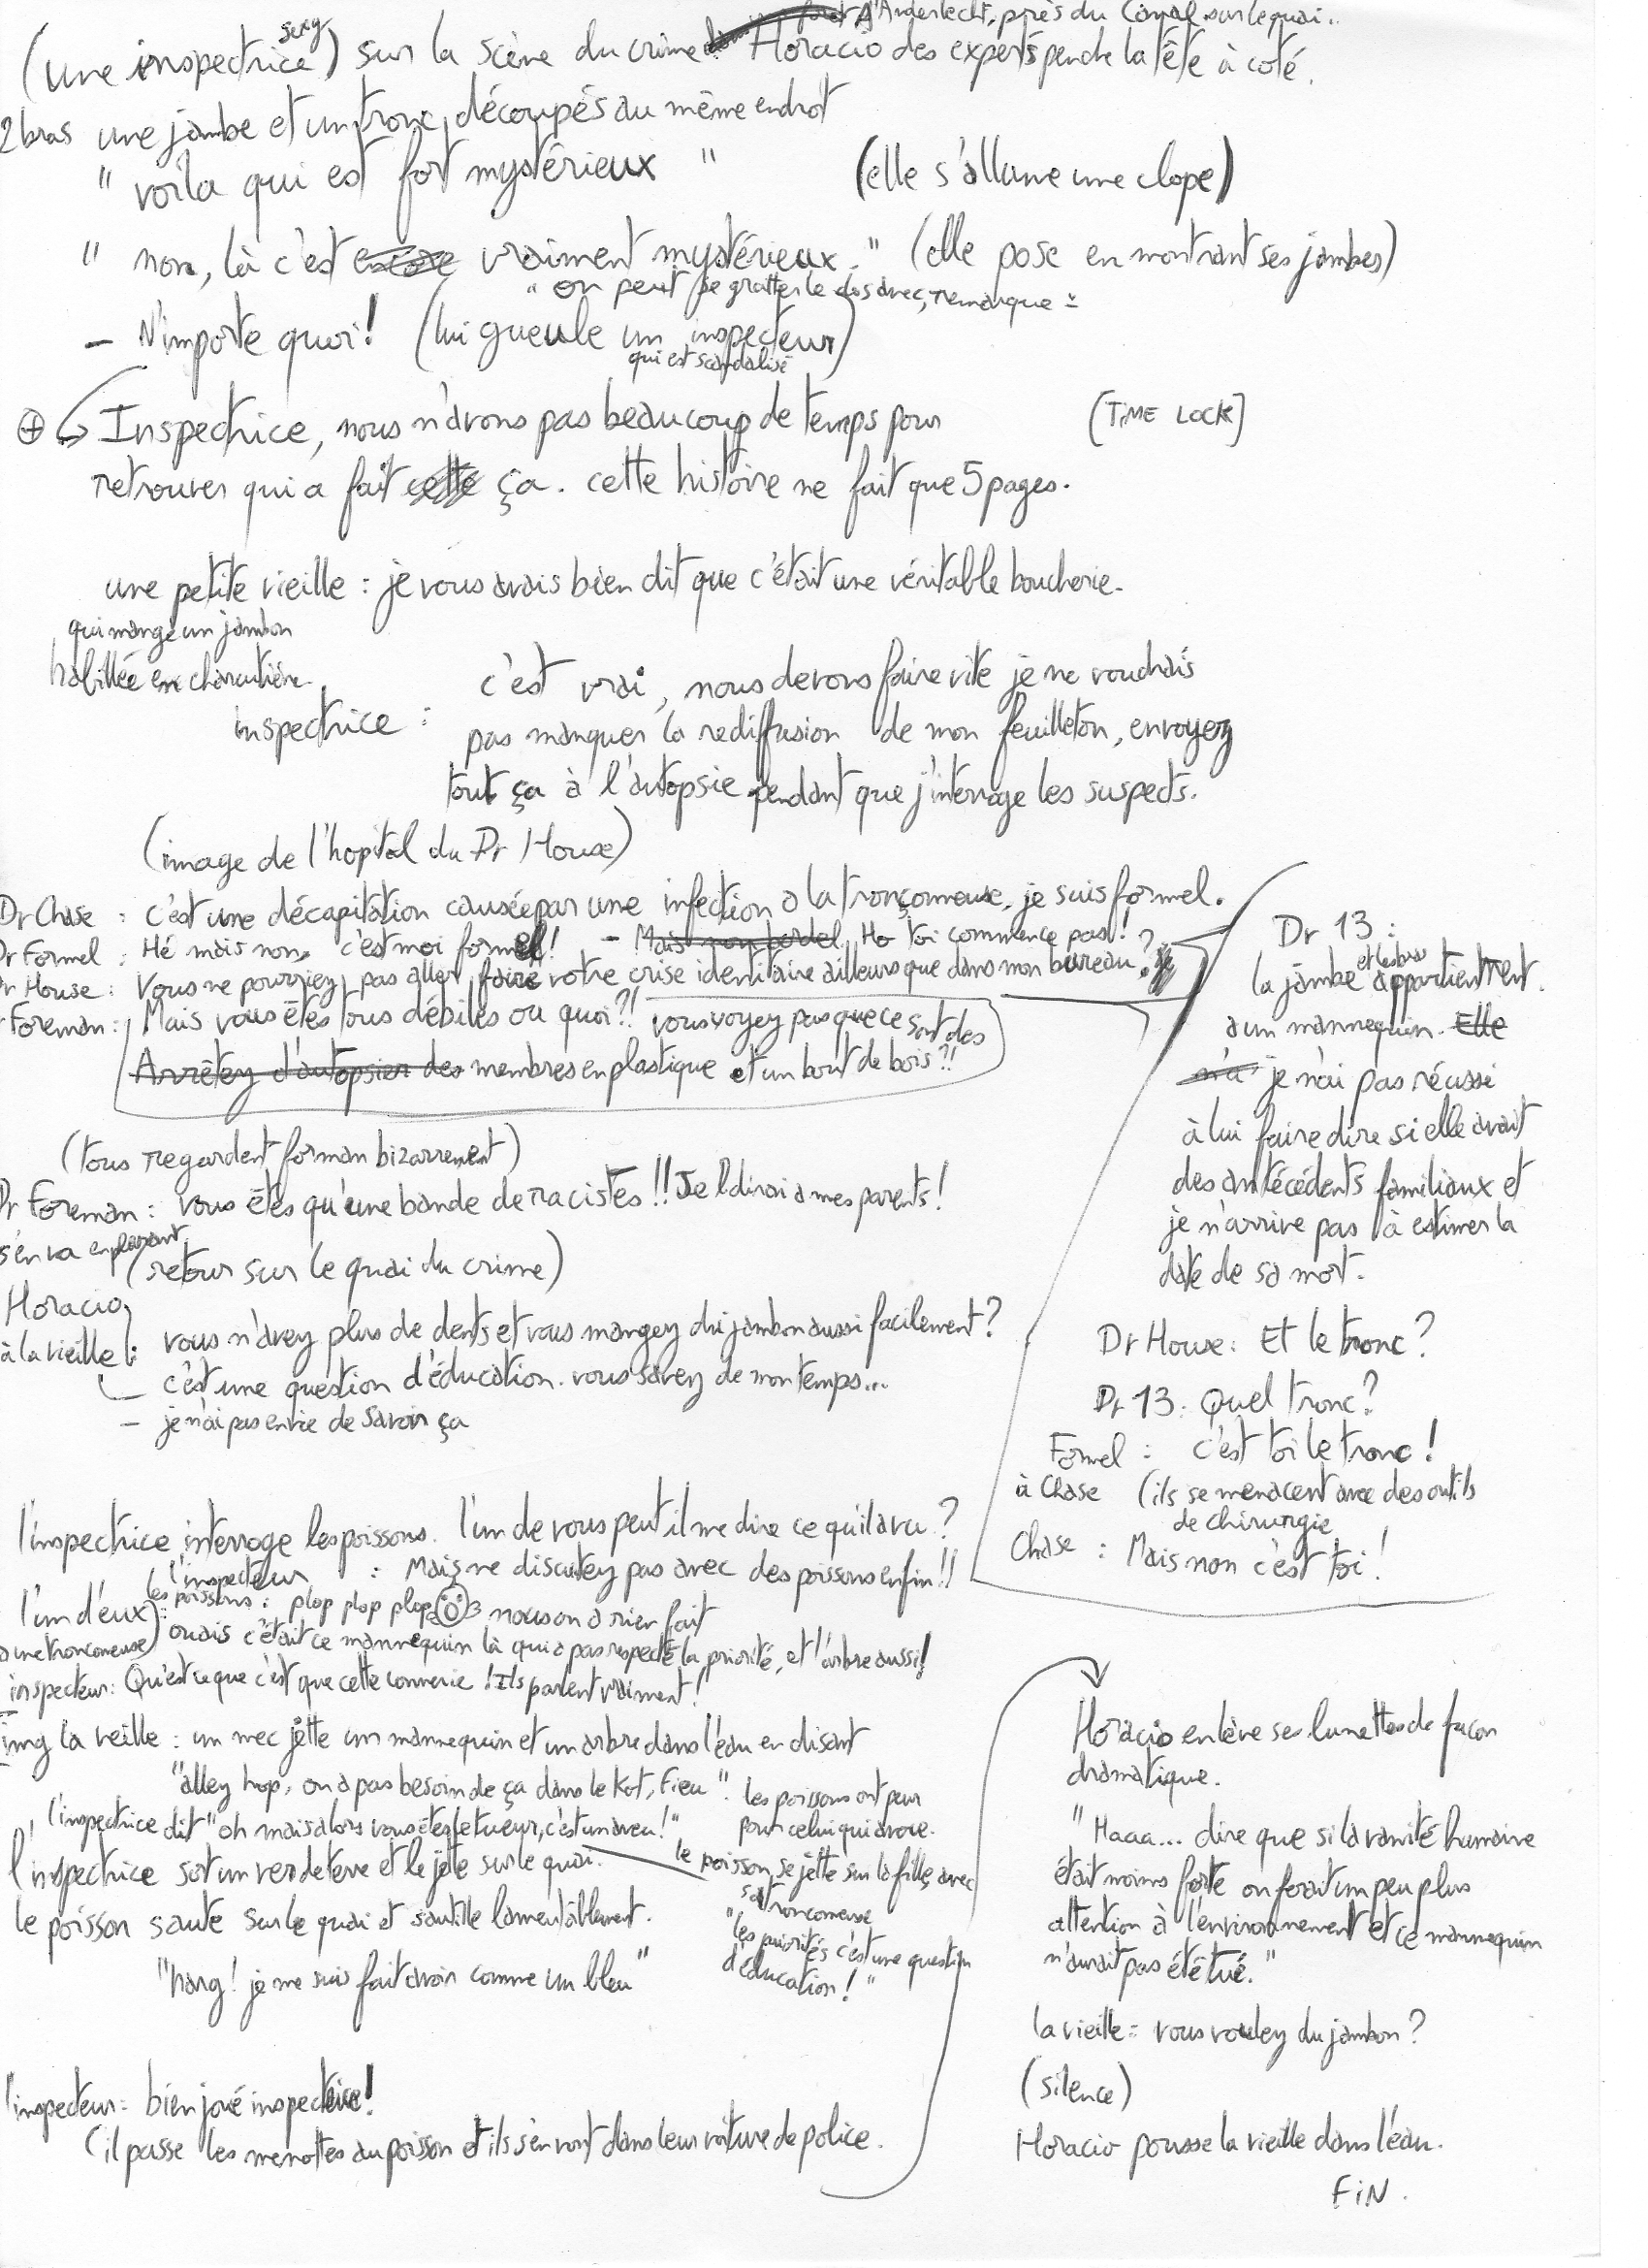 A Anderlecht, près du Canal sur le quai..
sexy
(une inspectrice) sur la scène du crime Horacio des experts penche la tête à coté.
2 bras une jambe et un tronc, découpés au même endroit
" voila qui est fort mystérieux " (elle s'allume une clope)
" non, là c'est encore vraiment mystérieux. " (elle pose en montrant ses jambes)
" on peut se gratter le dos avec, remarque "
- N'importe quoi! (lui gueule un inspecteur)
qui est scandalisé
⊕ Inspectrice, nous n'avons pas beaucoup de temps pour [TIME LOCK]
retrouver qui a fait cette ça. cette histoire ne fait que 5 pages.
une petite vieille : je vous avais bien dit que c'était une véritable boucherie.
qui mange un jambon
habillée en charcutière.
c'est vrai, nous devons faire vite je ne voudrais
inspectrice : pas manquer la rediffusion de mon feuilleton, envoyez
tout ça à l'autopsie pendant que j'interroge les suspects.
(image de l'hopital du Dr House)
Dr Chase : c'est une décapitation causée par une infection a la tronçonneuse, je suis formel.
Dr Formel : Hé mais non, c'est moi formel! - Mais non bordel Ho toi commence pas!
Dr House : Vous ne pourriez pas aller faire votre crise identitaire ailleurs que dans mon bureau?
Foreman : Mais vous êtes tous débiles ou quoi?! vous voyez pas que ce sont des
Arrêtez d'autopsier des membres en plastique et un bout de bois?!
(tous regardent forman bizarrement)
Dr Foreman : vous êtes qu'une bande de racistes!! Je l'dirai a mes parents!
s'en va en pleurant
(retour sur le quai du crime)
Horacio
à la vieille : vous n'avez plus de dents et vous mangez du jambon aussi facilement?
- c'est une question d'éducation. vous savez de mon temps...
- je n'ai pas envie de savoir ça
Dr 13 :
la jambe et les bras appartiennent.
a un mannequin. Elle
n'a je n'ai pas réussi
à lui faire dire si elle avait
des antécédents familiaux et
je n'arrive pas à estimer la
date de sa mort.
Dr House : Et le tronc?
Dr 13 : Quel tronc?
Formel : c'est toi le tronc!
à Chase (ils se menacent avec des outils
de chirurgie
Chase : Mais non c'est toi!
l'inspectrice interroge les poissons. l'un de vous peut il me dire ce qu'il a vu?
l'inspecteur : Mais ne discutez pas avec des poissons enfin!!
les poissons : plop plop plop nous on a rien fait
l'un d'eux : ouais c'était ce mannequin là qui a pas respecté la priorité, et l'arbre aussi!
a une tronconeuse)
inspecteur : Qu'est ce que c'est que cette connerie! Ils parlent vraiment!
img la veille : un mec jette un mannequin et un arbre dans l'eau en disant
"allez hop, on a pas besoin de ça dans le Kot, Fieu".
les poissons ont peur
pour celui qui avoue.
l'inspectrice dit "oh mais alors vous êtes le tueur, c'est un aveu!"
l'inspectrice sort un ver de terre et le jete sur le quai.
le poisson se jette sur la fille avec
sa tronconneuse
"les priorités c'est une question
d'éducation!"
le poisson saute sur le quai et sautille lamentablement.
"hang! je me suis fait avoir comme un bleu"
l'inspecteur : bien joué inspectrice!
(il passe les menottes au poisson et ils s'en vont dans leur voiture de police.
Horacio enlève ses lunettes de façon
dramatique.
"Haaa... dire que si la vanité humaine
était moins forte on ferait un peu plus
attention à l'environnement et ce mannequin
n'aurait pas été tué."
la vieille : vous voulez du jambon?
(silence)
Horacio pousse la vieille dans l'eau.
FIN.